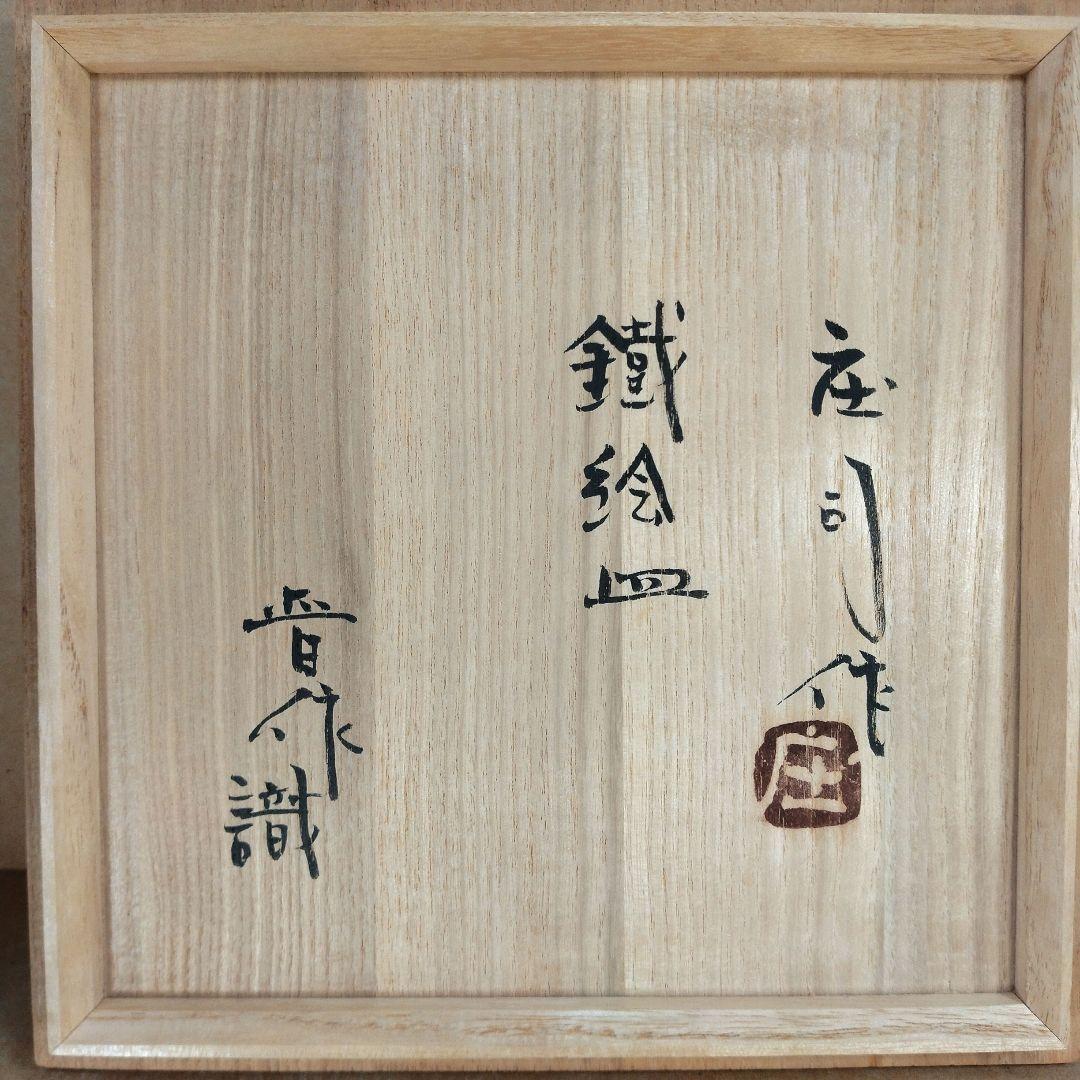 庄司作
庄
鐵絵皿
晋作識